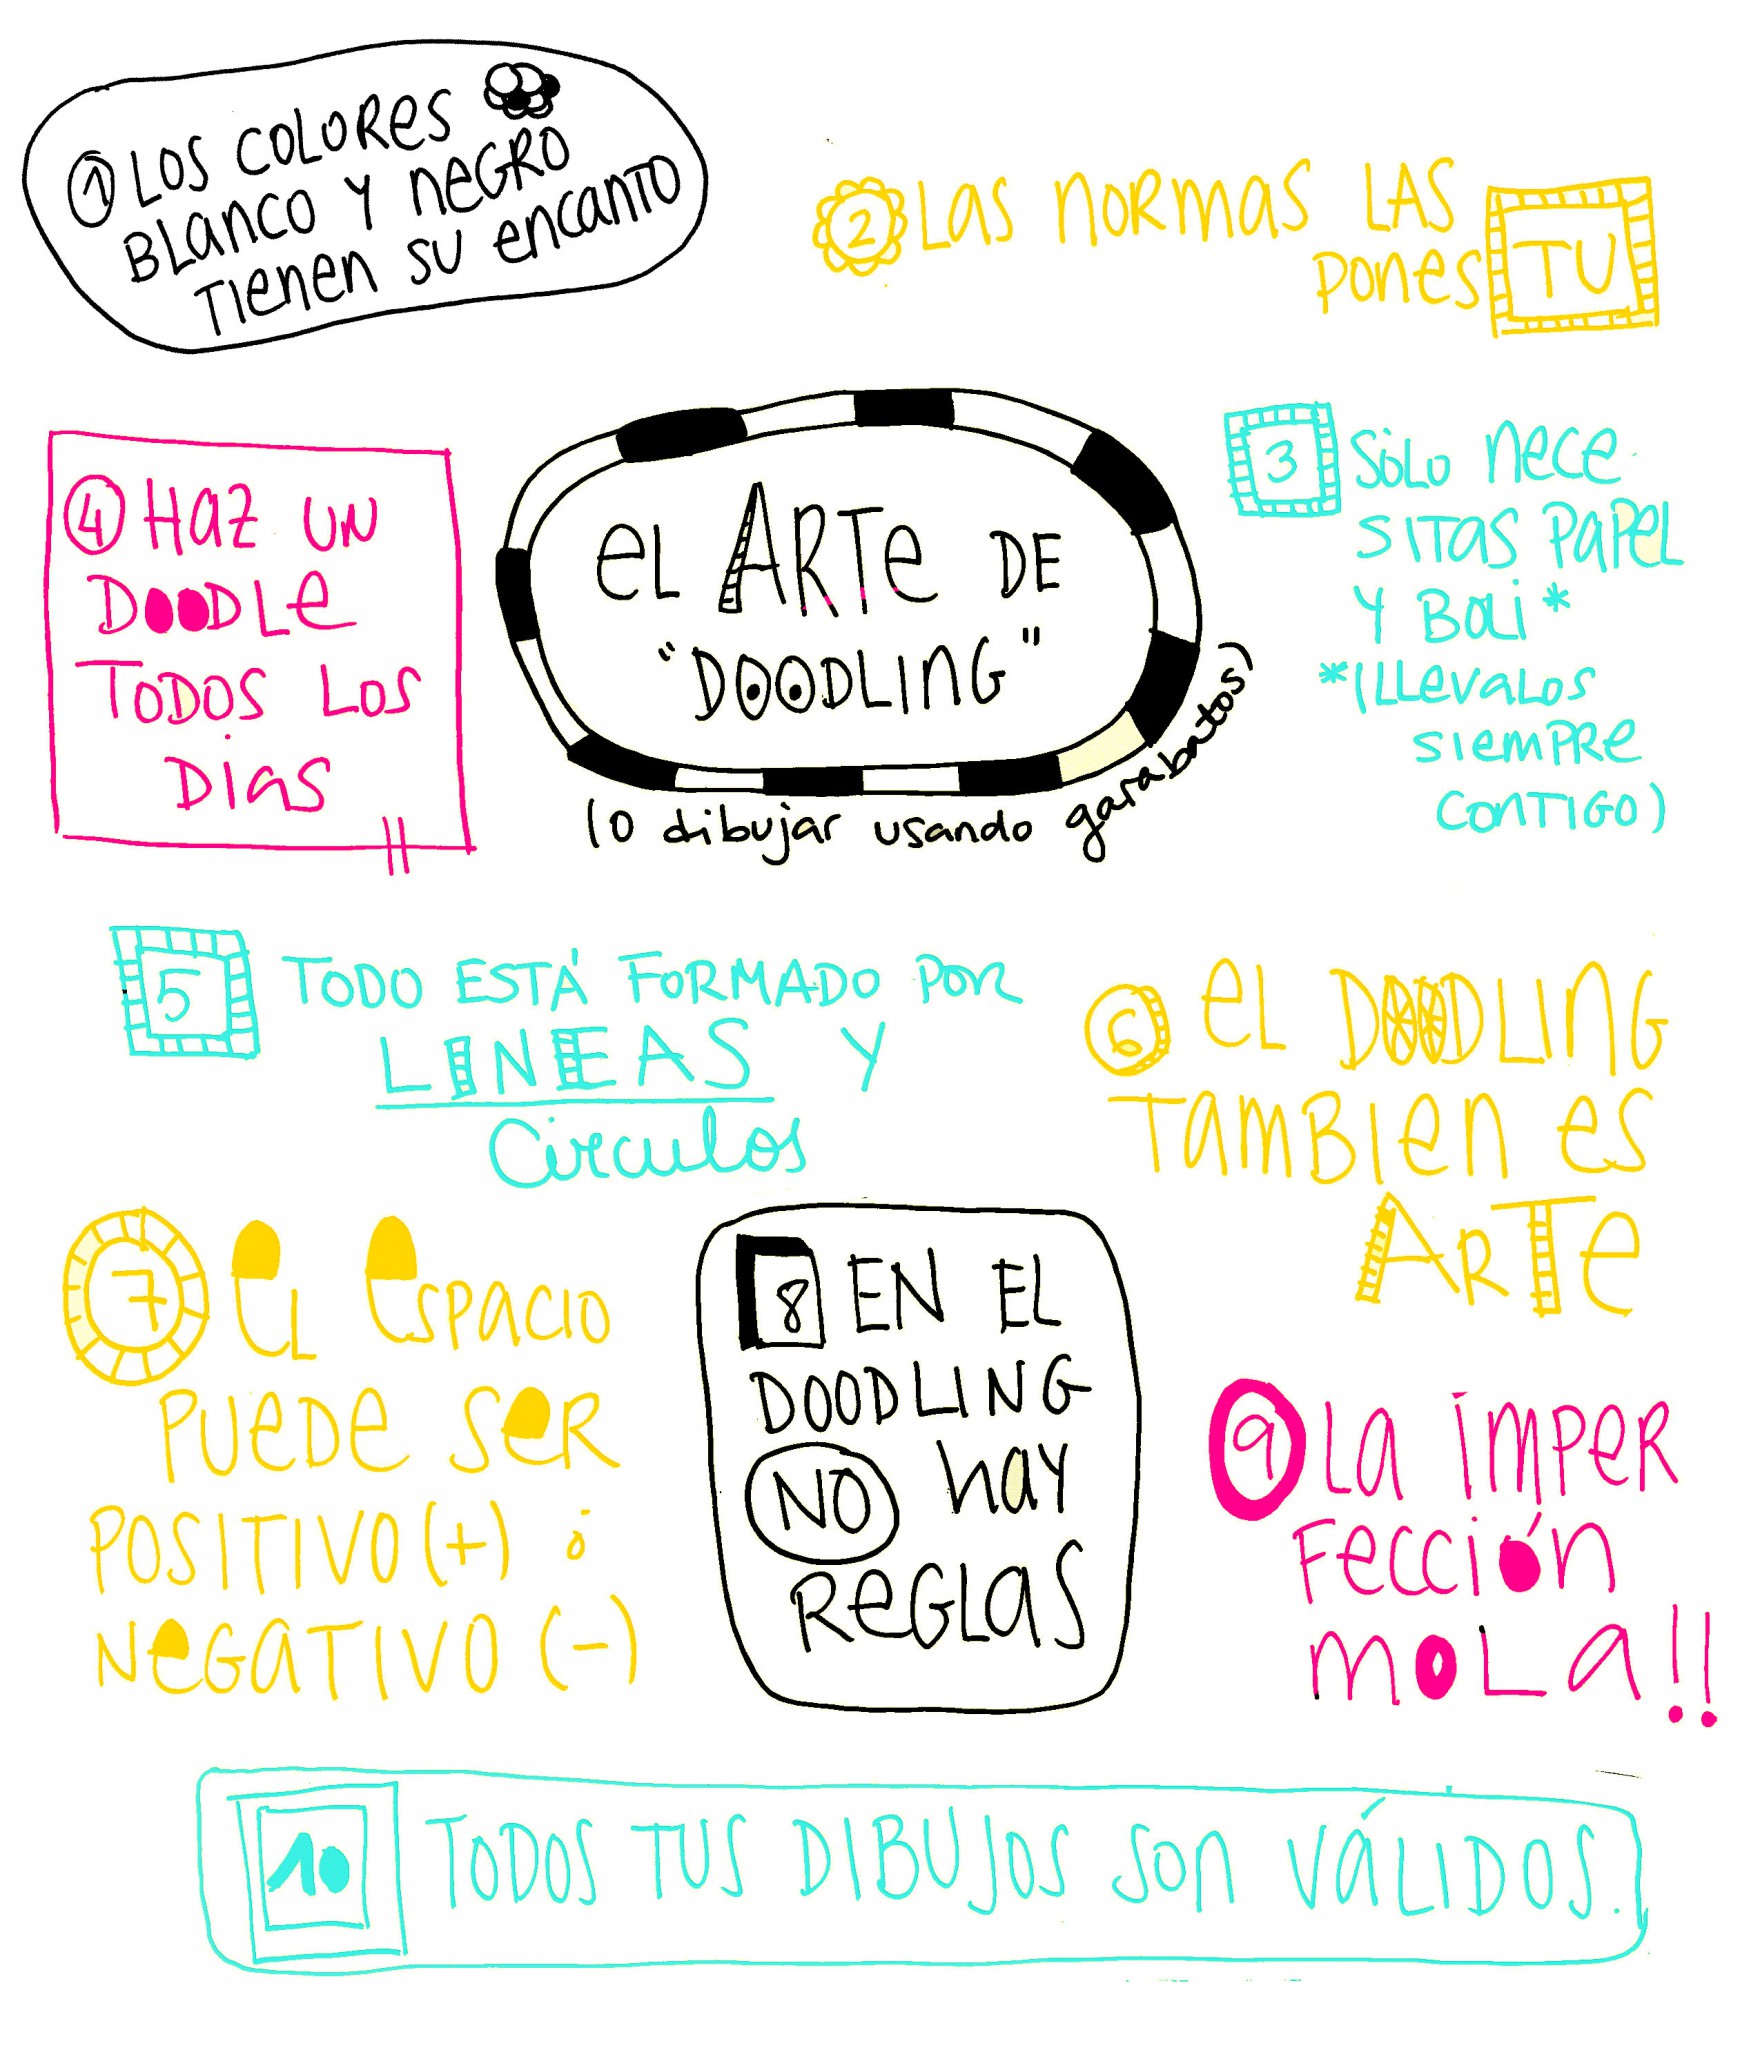 ① LOS COLORES
BLANCO Y NEGRO
TIENEN SU ENCANTO
2 LAS NORMAS LAS
PONES TU
EL ARTE DE
"DOODLING"
(o dibujar usando garabatos)
3 SÓLO NECE
SITAS PAPEL
Y BOLI*
*(LLEVALOS
SIEMPRE
CONTIGO)
④ HAZ UN
DOODLE
TODOS LOS
DIAS
5 TODO ESTÁ FORMADO POR
LINEAS Y
Circulos
6 EL DOODLING
TAMBIEN ES
ARTE
7 EL ESPACIO
PUEDE SER
POSITIVO (+) ó
NEGATIVO (-)
8 EN EL
DOODLING
NO hay
REGLAS
9 LA IMPER
FECCIÓN
MOLA!!
10 TODOS TUS DIBUJOS SON VÁLIDOS.